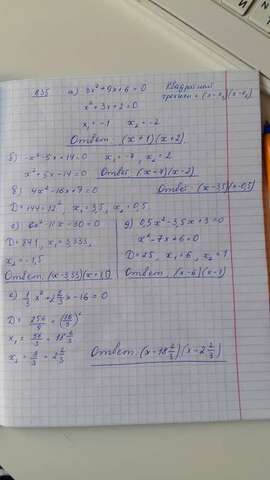 835 а) 3x²+9x+6=0 Квадратный
трёхчлен = (x-x₁)(x-x₂)
x²+3x+2=0
x₁=-1 x₂=-2
Ответ: (x+1)(x+2)
б) -x²-5x+14=0 x₁=-7, x₂=2
x²+5x-14=0 Ответ: (x+7)(x-2)
в) 4x²-16x+7=0 Ответ: (x-3,5)(x-0,5)
D=144=12², x₁=3,5, x₂=0,5
г) 6x²-11x-30=0
D=841, x₁=3,333,
x₂=-1,5
Ответ: (x-3,33)(x+1,5)
д) 0,5x²-3,5x+3=0
x²-7x+6=0
D=25, x₁=6, x₂=1
Ответ: (x-6)(x-1)
е) 1/3 x²+2 2/3 x-16=0
D= 256/9 =(16/3)²
x₁= 56/3 = 18 2/3
x₂= 8/3 = 2 2/3
Ответ: (x-18 2/3)(x-2 2/3)